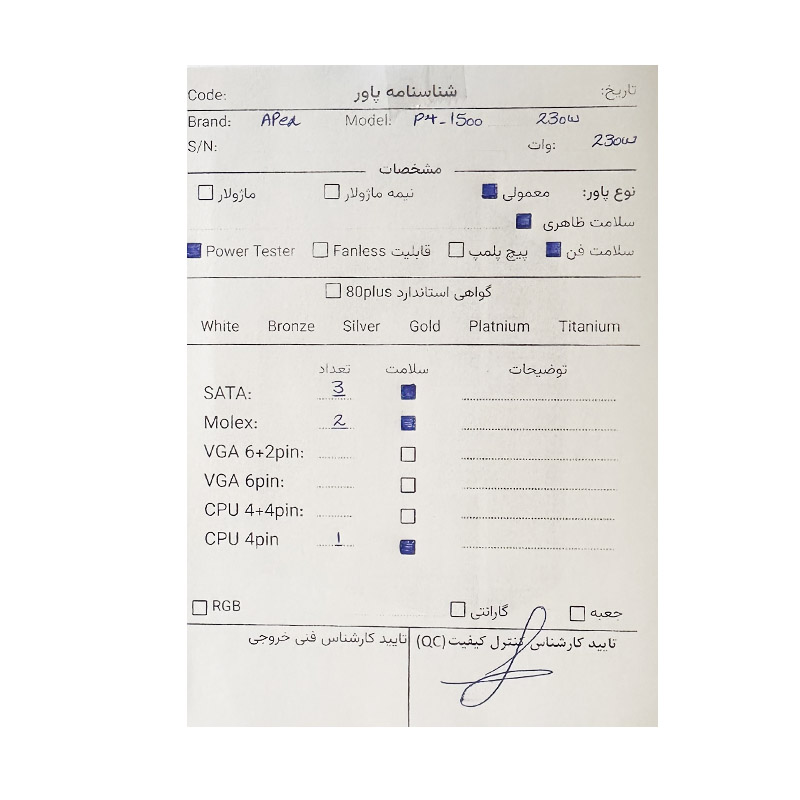 Code: شناسنامه پاور تاریخ:
Brand: APex Model: P4-1500 230w
S/N: وات: 230w
مشخصات
نوع پاور: معمولی نیمه ماژولار ماژولار
سلامت ظاهری
سلامت فن پیچ پلمپ قابلیت Fanless Power Tester
گواهی استاندارد 80plus
White Bronze Silver Gold Platnium Titanium
تعداد سلامت توضیحات
SATA: 3
Molex: 2
VGA 6+2pin:
VGA 6pin:
CPU 4+4pin:
CPU 4pin 1
RGB گارانتی جعبه
تایید کارشناس کنترل کیفیت (QC) تایید کارشناس فنی خروجی